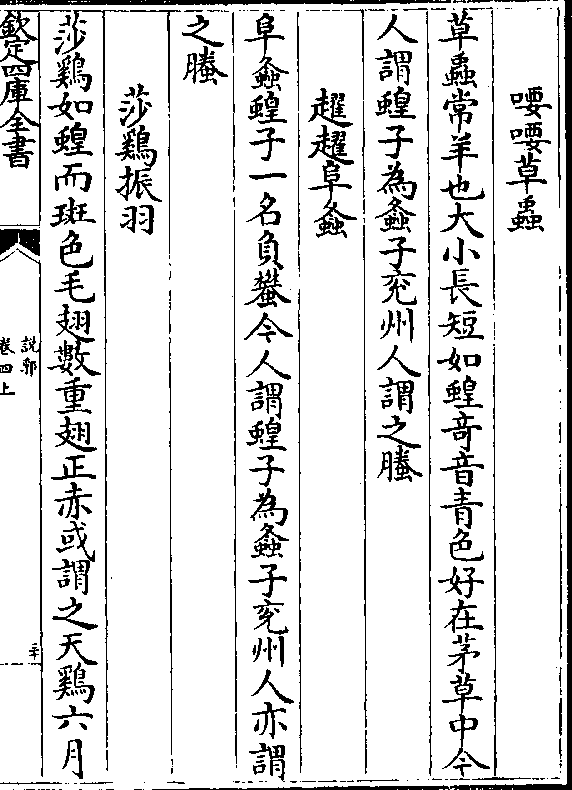 喓喓草蟲
草蟲常羊也大小長短如蝗奇音青色好在茅草中今
人謂蝗子為螽子兖州人謂之螣
趯趯阜螽
阜螽蝗子一名負蠜今人謂蝗子為螽子兖州人亦謂
之螣
莎鷄振羽
莎鷄如蝗而斑色毛翅數重翅正赤或謂之天鷄六月
欽定四庫全書
說郛
卷四上
二十